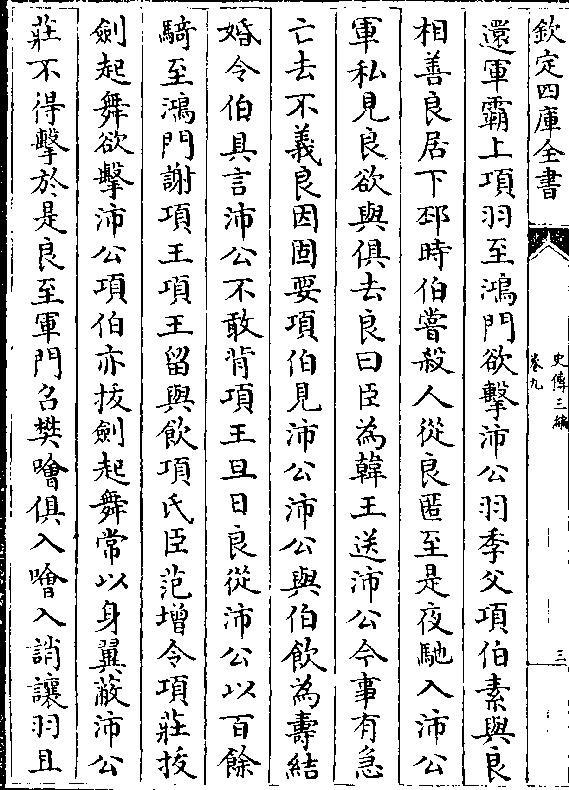 欽定四庫全書
史傳三編
卷九
三
還軍霸上項羽至鴻門欲擊沛公羽季父項伯素與良
相善良居下邳時伯嘗殺人從良匿至是夜馳入沛公
軍私見良欲與俱去良曰臣為韓王送沛公今事有急
亡去不義良因固要項伯見沛公沛公與伯飲為壽結
婚令伯具言沛公不敢背項王旦日良從沛公以百餘
騎至鴻門謝項王項王留與飲項氏臣范增令項莊拔
劍起舞欲擊沛公項伯亦拔劍起舞常以身翼蔽沛公
莊不得擊於是良至軍門名樊噲俱入噲入誚讓羽且